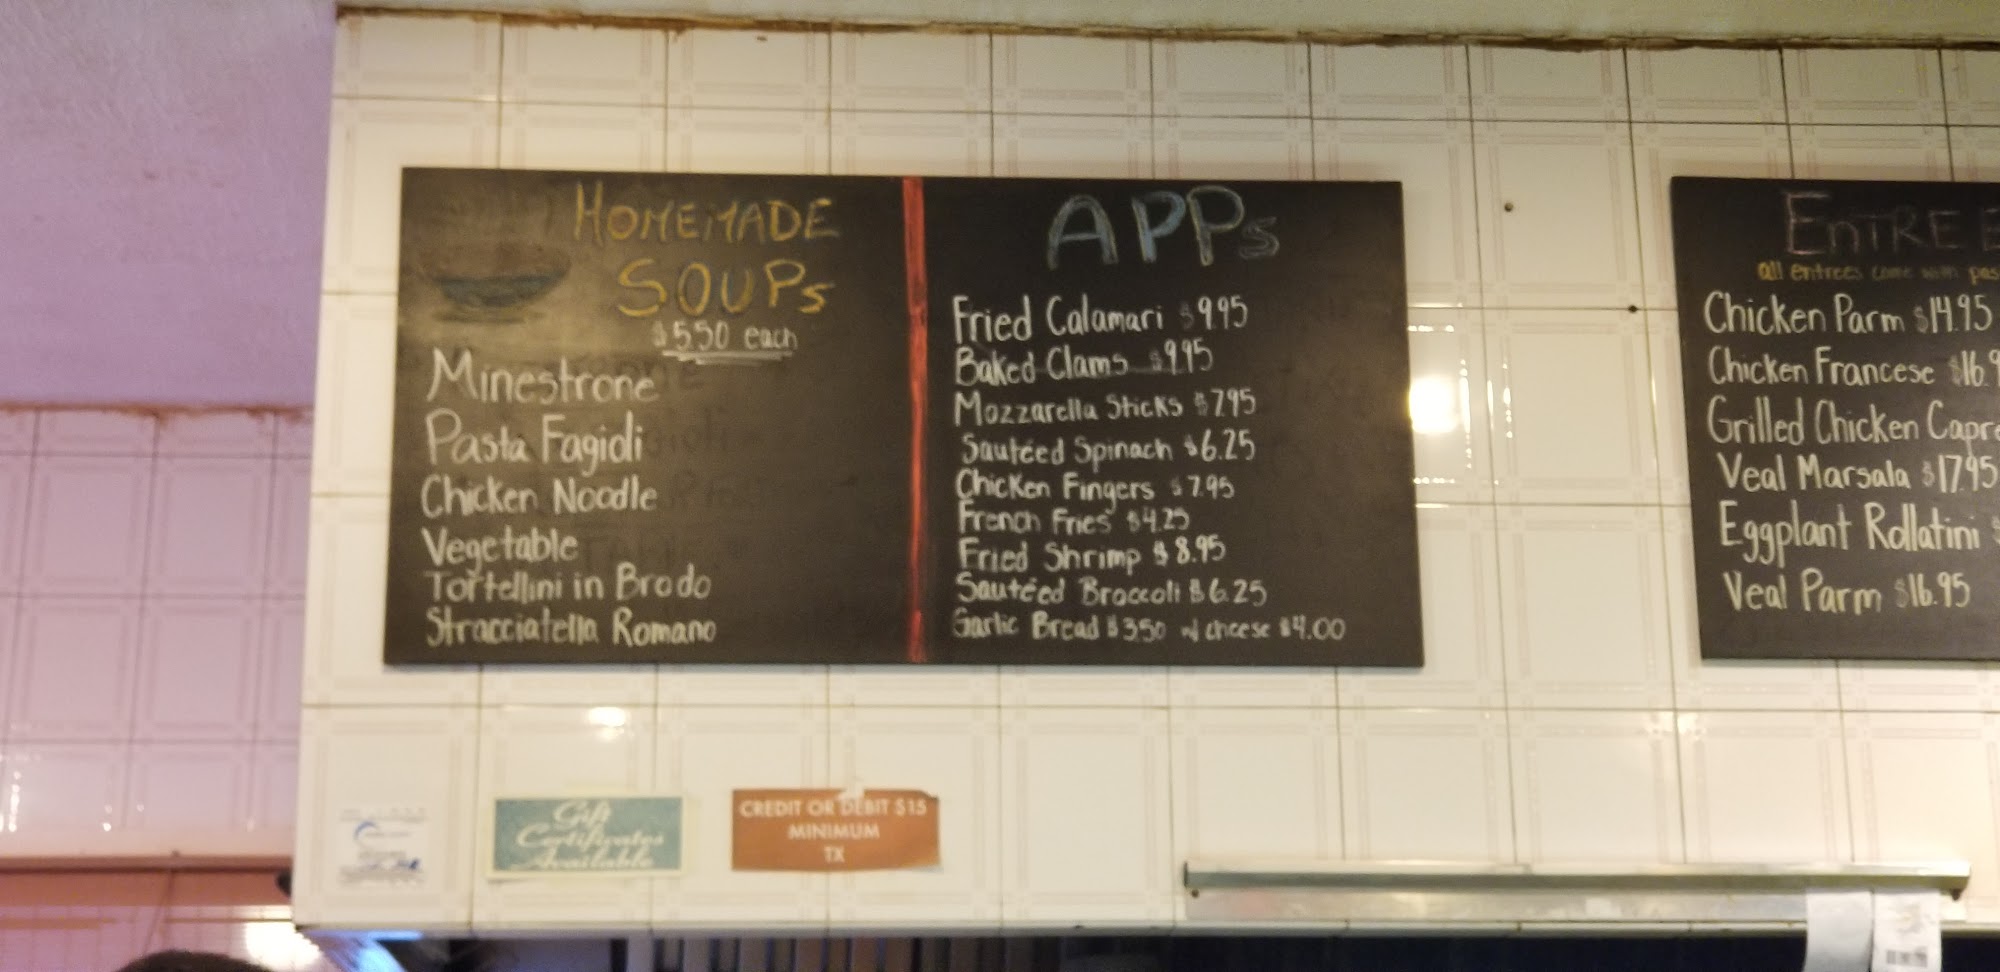 HOMEMADE
SOUPs
$5.50 each
Minestrone
Pasta Fagioli
Chicken Noodle
Vegetable
Tortellini in Brodo
Stracciatella Romano
APPs
Fried Calamari $9.95
Baked Clams $9.95
Mozzarella Sticks $7.95
Sautéed Spinach $6.25
Chicken Fingers $7.95
French Fries $4.25
Fried Shrimp $8.95
Sautéed Broccoli $6.25
Garlic Bread $3.50 w/ cheese $4.00
ENTREE
all entrees come with pas
Chicken Parm $14.95
Chicken Francese $16.9
Grilled Chicken Capre
Veal Marsala $17.95
Eggplant Rollatini $
Veal Parm $16.95
Gift
Certificates
Available
CREDIT OR DEBIT $15
MINIMUM
TX